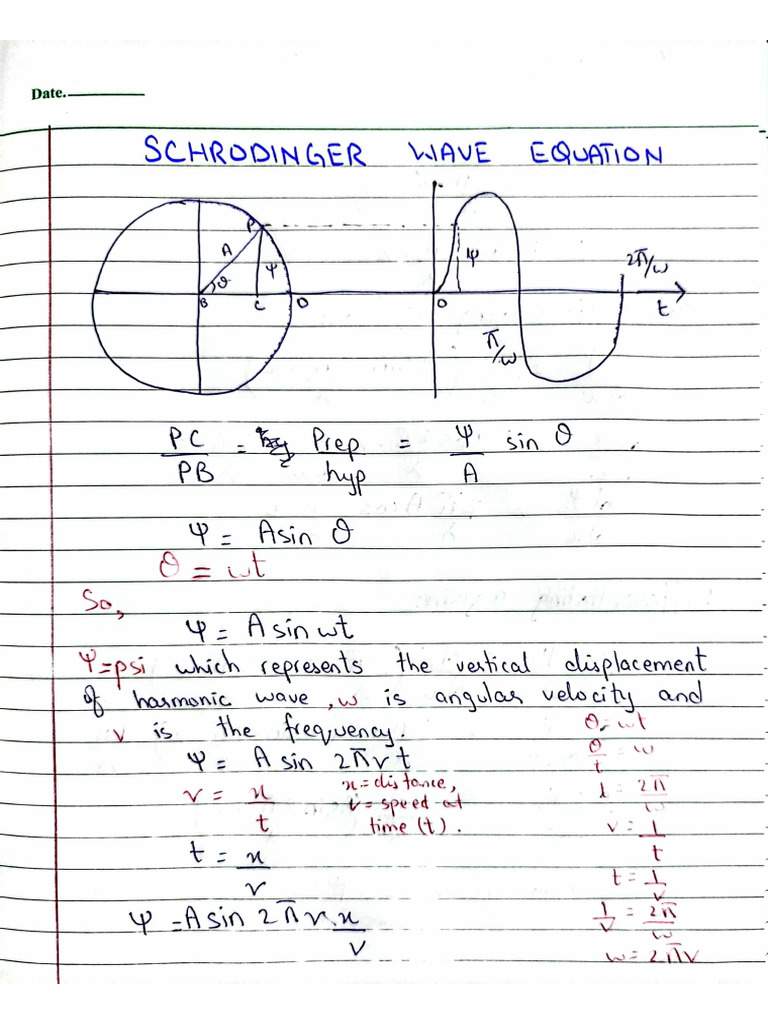 Date.
SCHRODINGER WAVE EQUATION
P
A
ϑ
ψ
B
C
O
ψ
O
π/ω
2π/ω
t
PC/PB = Prep/hyp = ψ/A sin ϑ
ψ = A sin ϑ
ϑ = ωt
So,
ψ = A sin ωt
ψ=psi which represents the vertical displacement
of harmonic wave, ω is angular velocity and
v is the frequency.
ψ = A sin 2πvt
v = x/t
x = distance,
v = speed at
time (t).
t = x/v
ψ = A sin 2πv.x/v
ϑ = ωt
ϑ/t = ω
1 = 2π/ω
v = 1/t
t = 1/v
1/v = 2π/ω
ω = 2πv